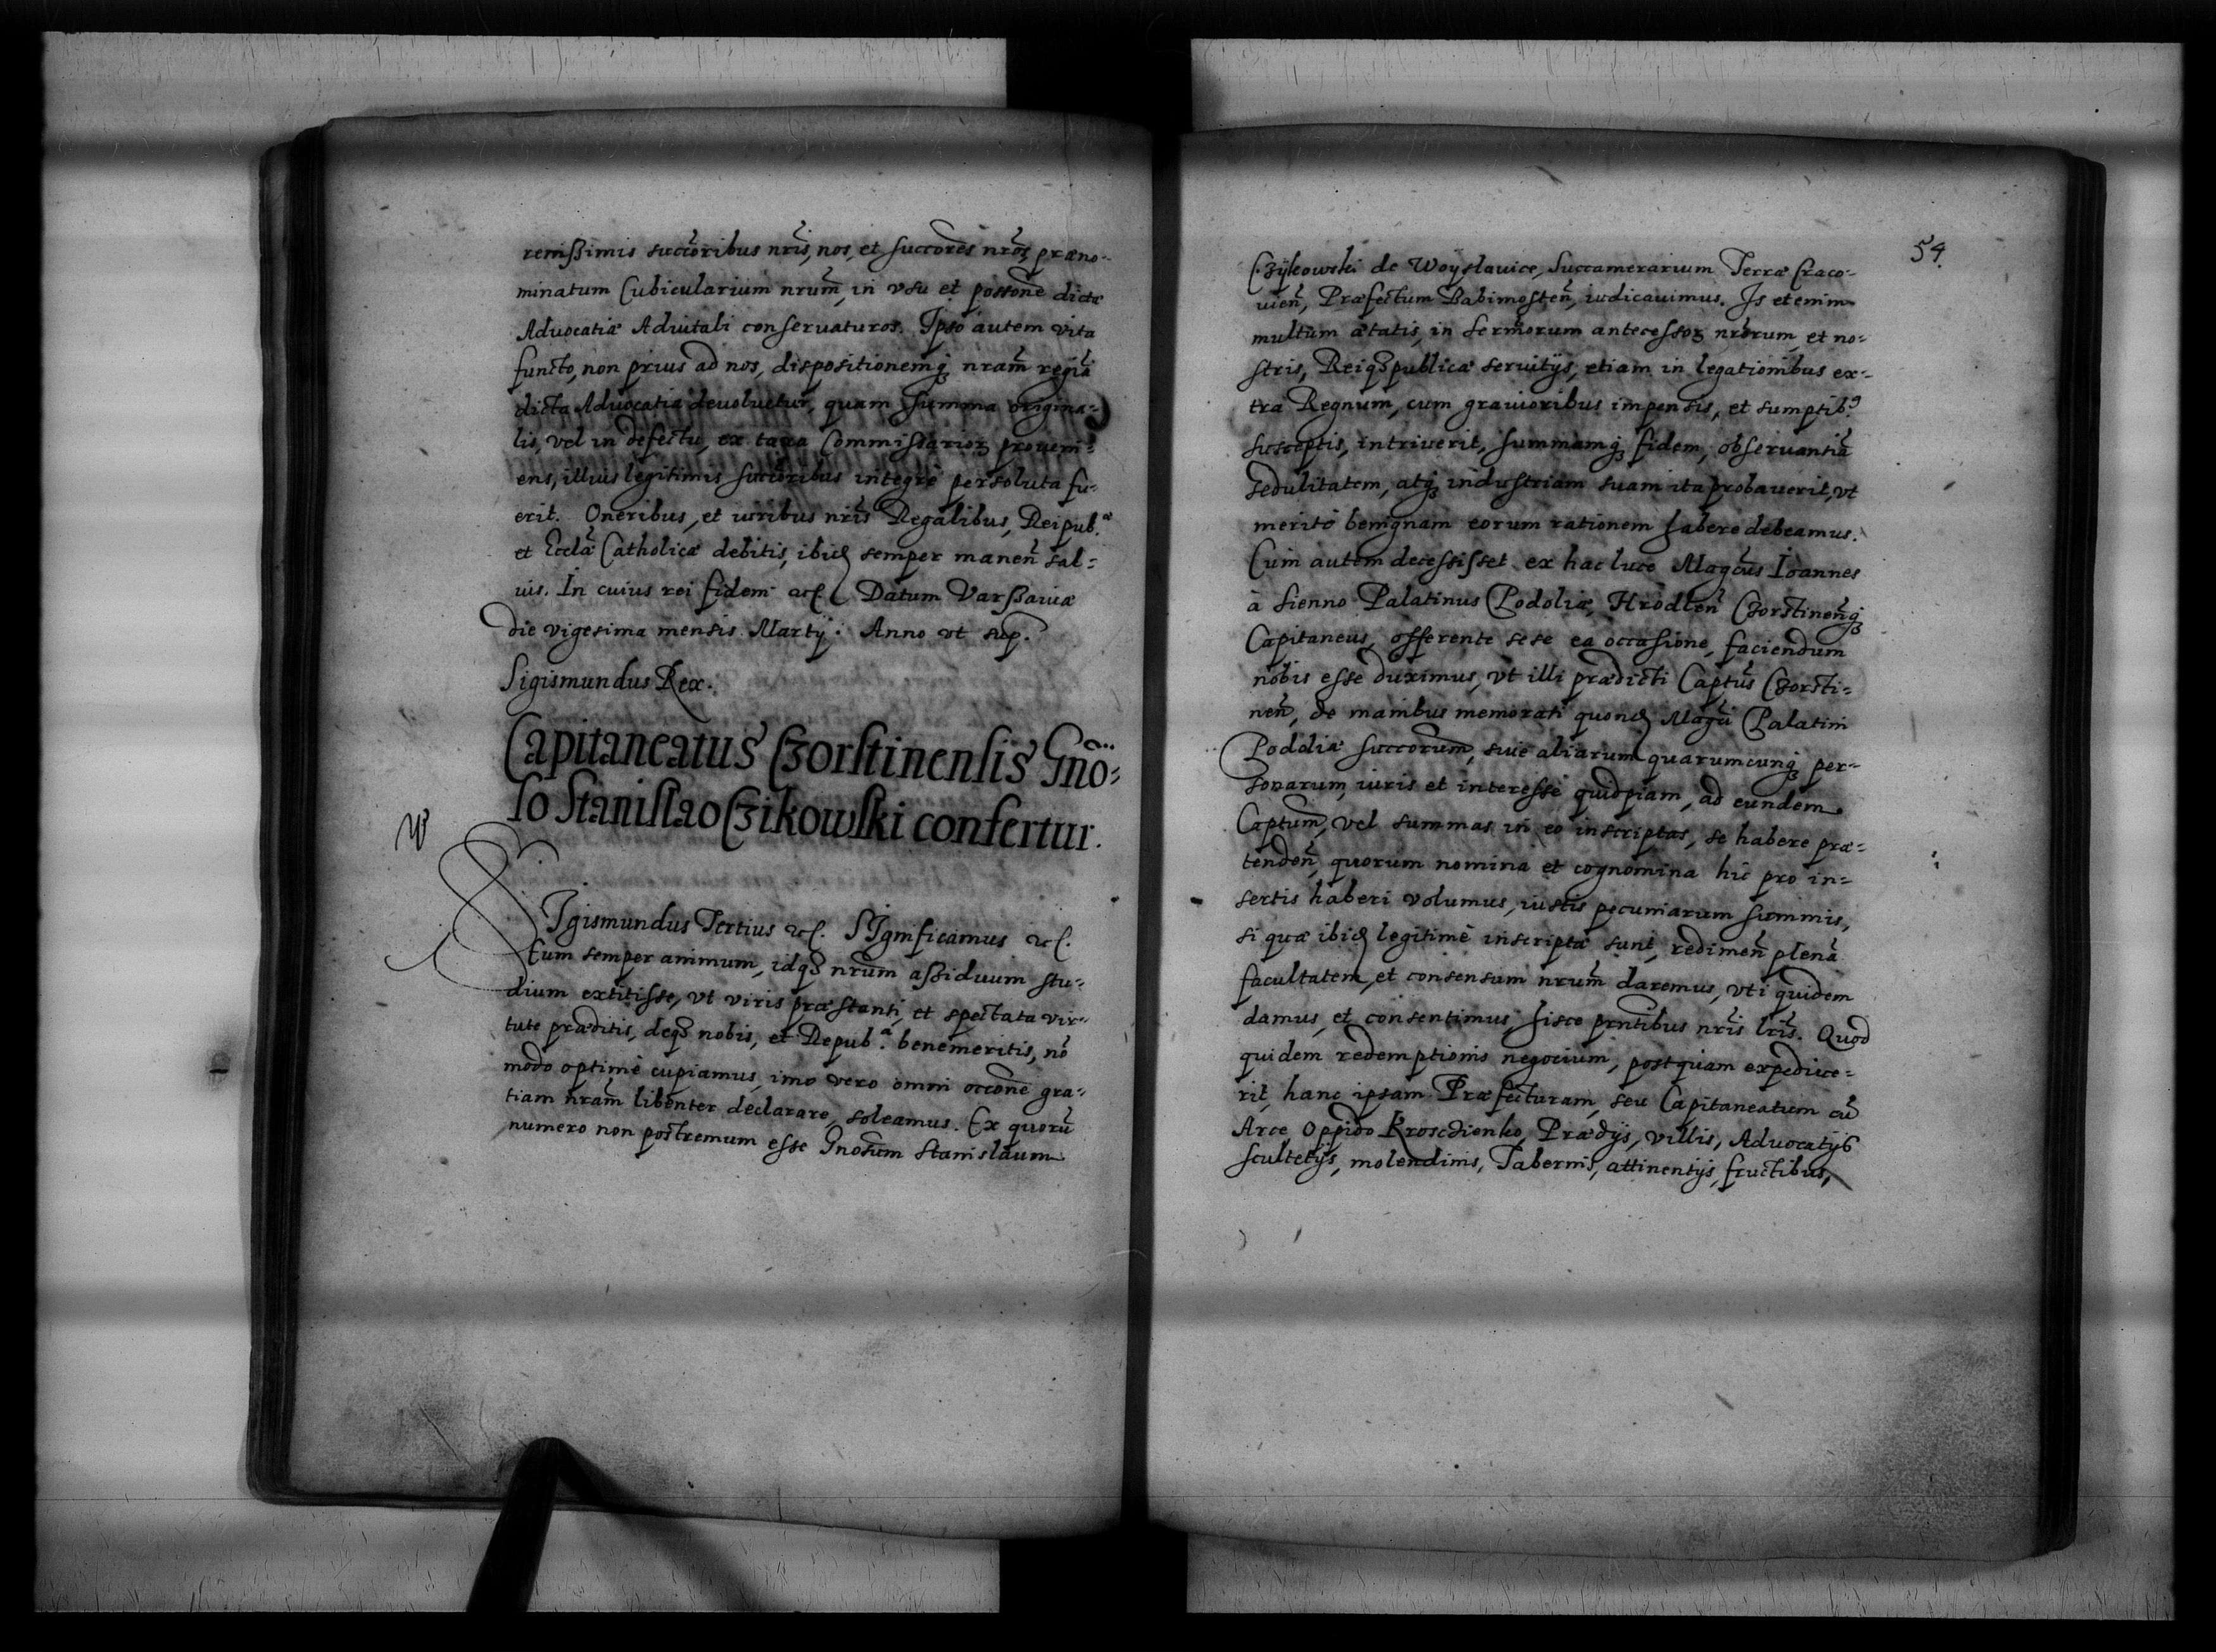 renißimis succoribus nris, nos, et succores nros, præno-
minatum Cubicularium nrum, in vsu et possone dictæ
Advocatiæ Advitali conservaturos. Ipso autem vita
functo, non prius ad nos, dispositionemq nram regiã
dicta Advocatia devoluetur, quam summa origina-
lis, vel in defectu, ex taxa Commissarioꝝ proveni-
ens, illius legitimis succoribus integrè persoluta fu-
erit. Oneribus, et iuribus nris Regalibus, Reipub.æ
et Eccłæ Catholicæ debitis, ibid semper maneñ sal-
uis. In cuius rei fidem etc. Datum Varßaviæ
die vigesima mensis Martij. Anno vt sup.
Sigismundus Rex.
Capitaneatus Czorstinensis Gño-
so Stanislao Czikowski confertur.
SIgismundus Tertius etc. SIgnificamus etc.
Eum semper animum, idq nrum aßiduum stu-
dium extitisse, vt viris præstanti, et spectata vir-
tute præditis, deq nobis, et Repub.a benemeritis, nõ
modo optimè cupiamus, imo vero omni occone gra-
tiam nram libenter declarare, soleamus. Ex quorũ
numero non postremum esse Gnosum Stanislaum
54.
Czÿkowski de Woyslavice, Succamerarium Terræ Craco-
vieñ, Præfectum Babimosteñ, iudicauimus. Is etenim
multum ætatis, in sermorum antecessoꝝ nrorum, et no-
stris, Reiqpublicæ servitijs, etiam in legationibus ex-
tra Regnum, cum gravioribus impensis, et sumptib9
susceptis, intriverit, summamq fidem, observantiã
sedulitatem, atq industriam suam ita probaverit, vt
meritò benignam eorum rationem habere debeamus.
Cum autem decessisset ex hac luce Magcus Ioannes
à Sienno Palatinus Podoliæ, Hrodleñ Czorstineñq
Capitaneus, offerente sese ea occasione, faciendum
nobis esse duximus, vt illi prædicti Captus Czorsti-
neñ, de manibus memorati quond Magci Palatini
Podoliæ succorum, sive aliarum quarumcunq per-
sonarum, iuris et interesse quidpiam, ad eundem
Captum, vel summas in eo inscriptas, se habere præ-
tendeñ, quorum nomina et cognomina hic pro in-
sertis haberi volumus, iustis pecuniarum summis,
si quæ ibid legitimè inscriptæ sunt, redimeñ plenã
facultatem, et consensum nrum daremus, vti quidem
damus, et consentimus, hisce prntibus nris lris. Quod
quidem redemptionis negocium, postquam expedive-
rit, hanc ipsam Præfecturam, seu Capitaneatum cũ
Arce, Oppido Kroscienko, Prædijs, villis, Advocatijs
scultetijs, molendinis, Tabernis, attinentijs, fructibus,